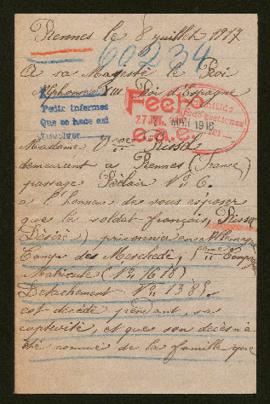 Rennes le 8 juillet 1917
60234
A sa Majesté le Roi
Alphonse XIII Roi d'Espagne
Pedir informes
Que se hace así
Fecha
27 JUL
1918
Madame Vve
demeurant à Rennes (France)
passage Bélair No 6.
a l'honneur de vous exposer
que le soldat français,
Désiré) prisonnier en
Camp des Meschede,
Matricule (No 1618)
Détachement No 1389,
est décédé pendant sa
captivité, et que son décès n'a
été connue de la famille que